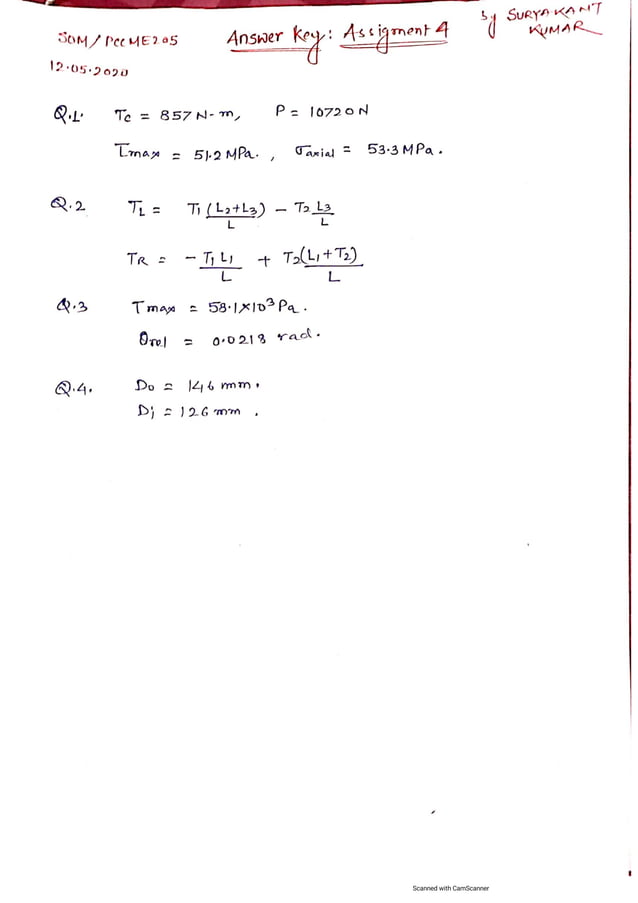 SOM/PCCME205
Answer Key: Assigment 4
by SURYAKANT KUMAR
12.05.2020
Q.1. Tc = 857 N-m, P = 10720N
τmax = 51.2 MPa., σaxial = 53.3 MPa.
Q.2 TL = T1(L2+L3)/L - T2 L3/L
TR = - T1 L1/L + T2(L1+T2)/L
Q.3 Tmax = 58.1×10³ Pa.
θrel = 0.0218 rad.
Q.4. Do = 146 mm.
Di = 126 mm.
Scanned with CamScanner